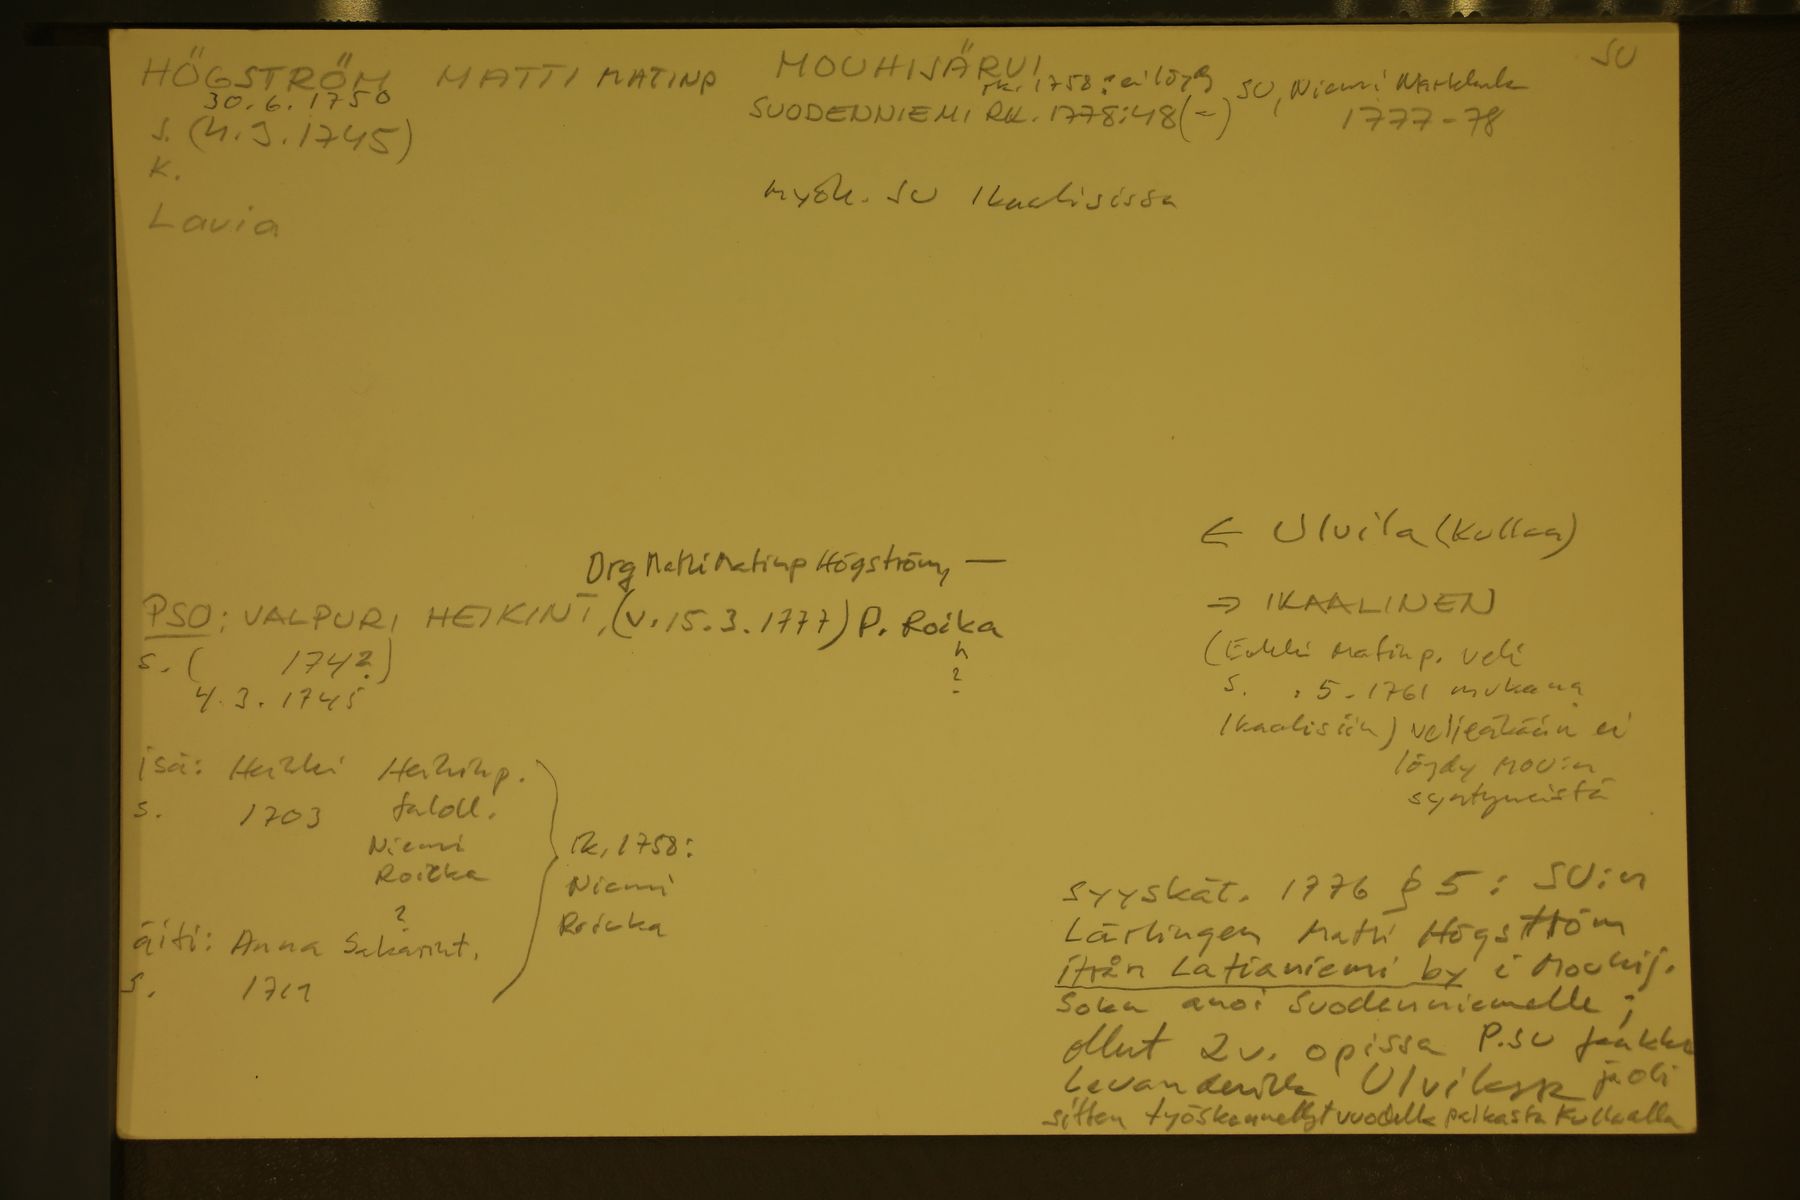 HÖGSTRÖM MATTI MATINP MOUHIJÄRVI SU
rk. 1758: ei löydy SU, Niemi Markkula
30.6.1750
SUODENNIEMI RK. 1778:48 (-) 1777-78
s. (4.3.1745)
K.
myöh. SU Ikaalisissa
Lavia
← Ulvila (Kullaa)
Org Matti Matinp Högström, —
PSO: VALPURI HEIKINT, (v. 15.3.1777) P. Roika
→ IKAALINEN
h
?
s. ( 1742?)
4.3.1745
(Erkki Matinp. veli
s. .5.1761 mukana
Ikaalisiin) veljeäkään ei
löydy MOU:n
syntyneistä
isä: Heikki Heikinp.
s. 1703 taloll.
Niemi
Roikka
?
rk. 1758:
Niemi
Roikka
äiti: Anna Sakarint.
s. 1711
syyskär. 1776 § 5: SU:n
Lärlingen Matti Högström
ifrån Latianiemi by i Mouhij.
joka anoi Suodenniemelle;
ollut 2 v. opissa P.SU Jaakko
Levanderilla Ulvilassa ja oli
sitten työskennellyt vuodella paikasta Kullaalla